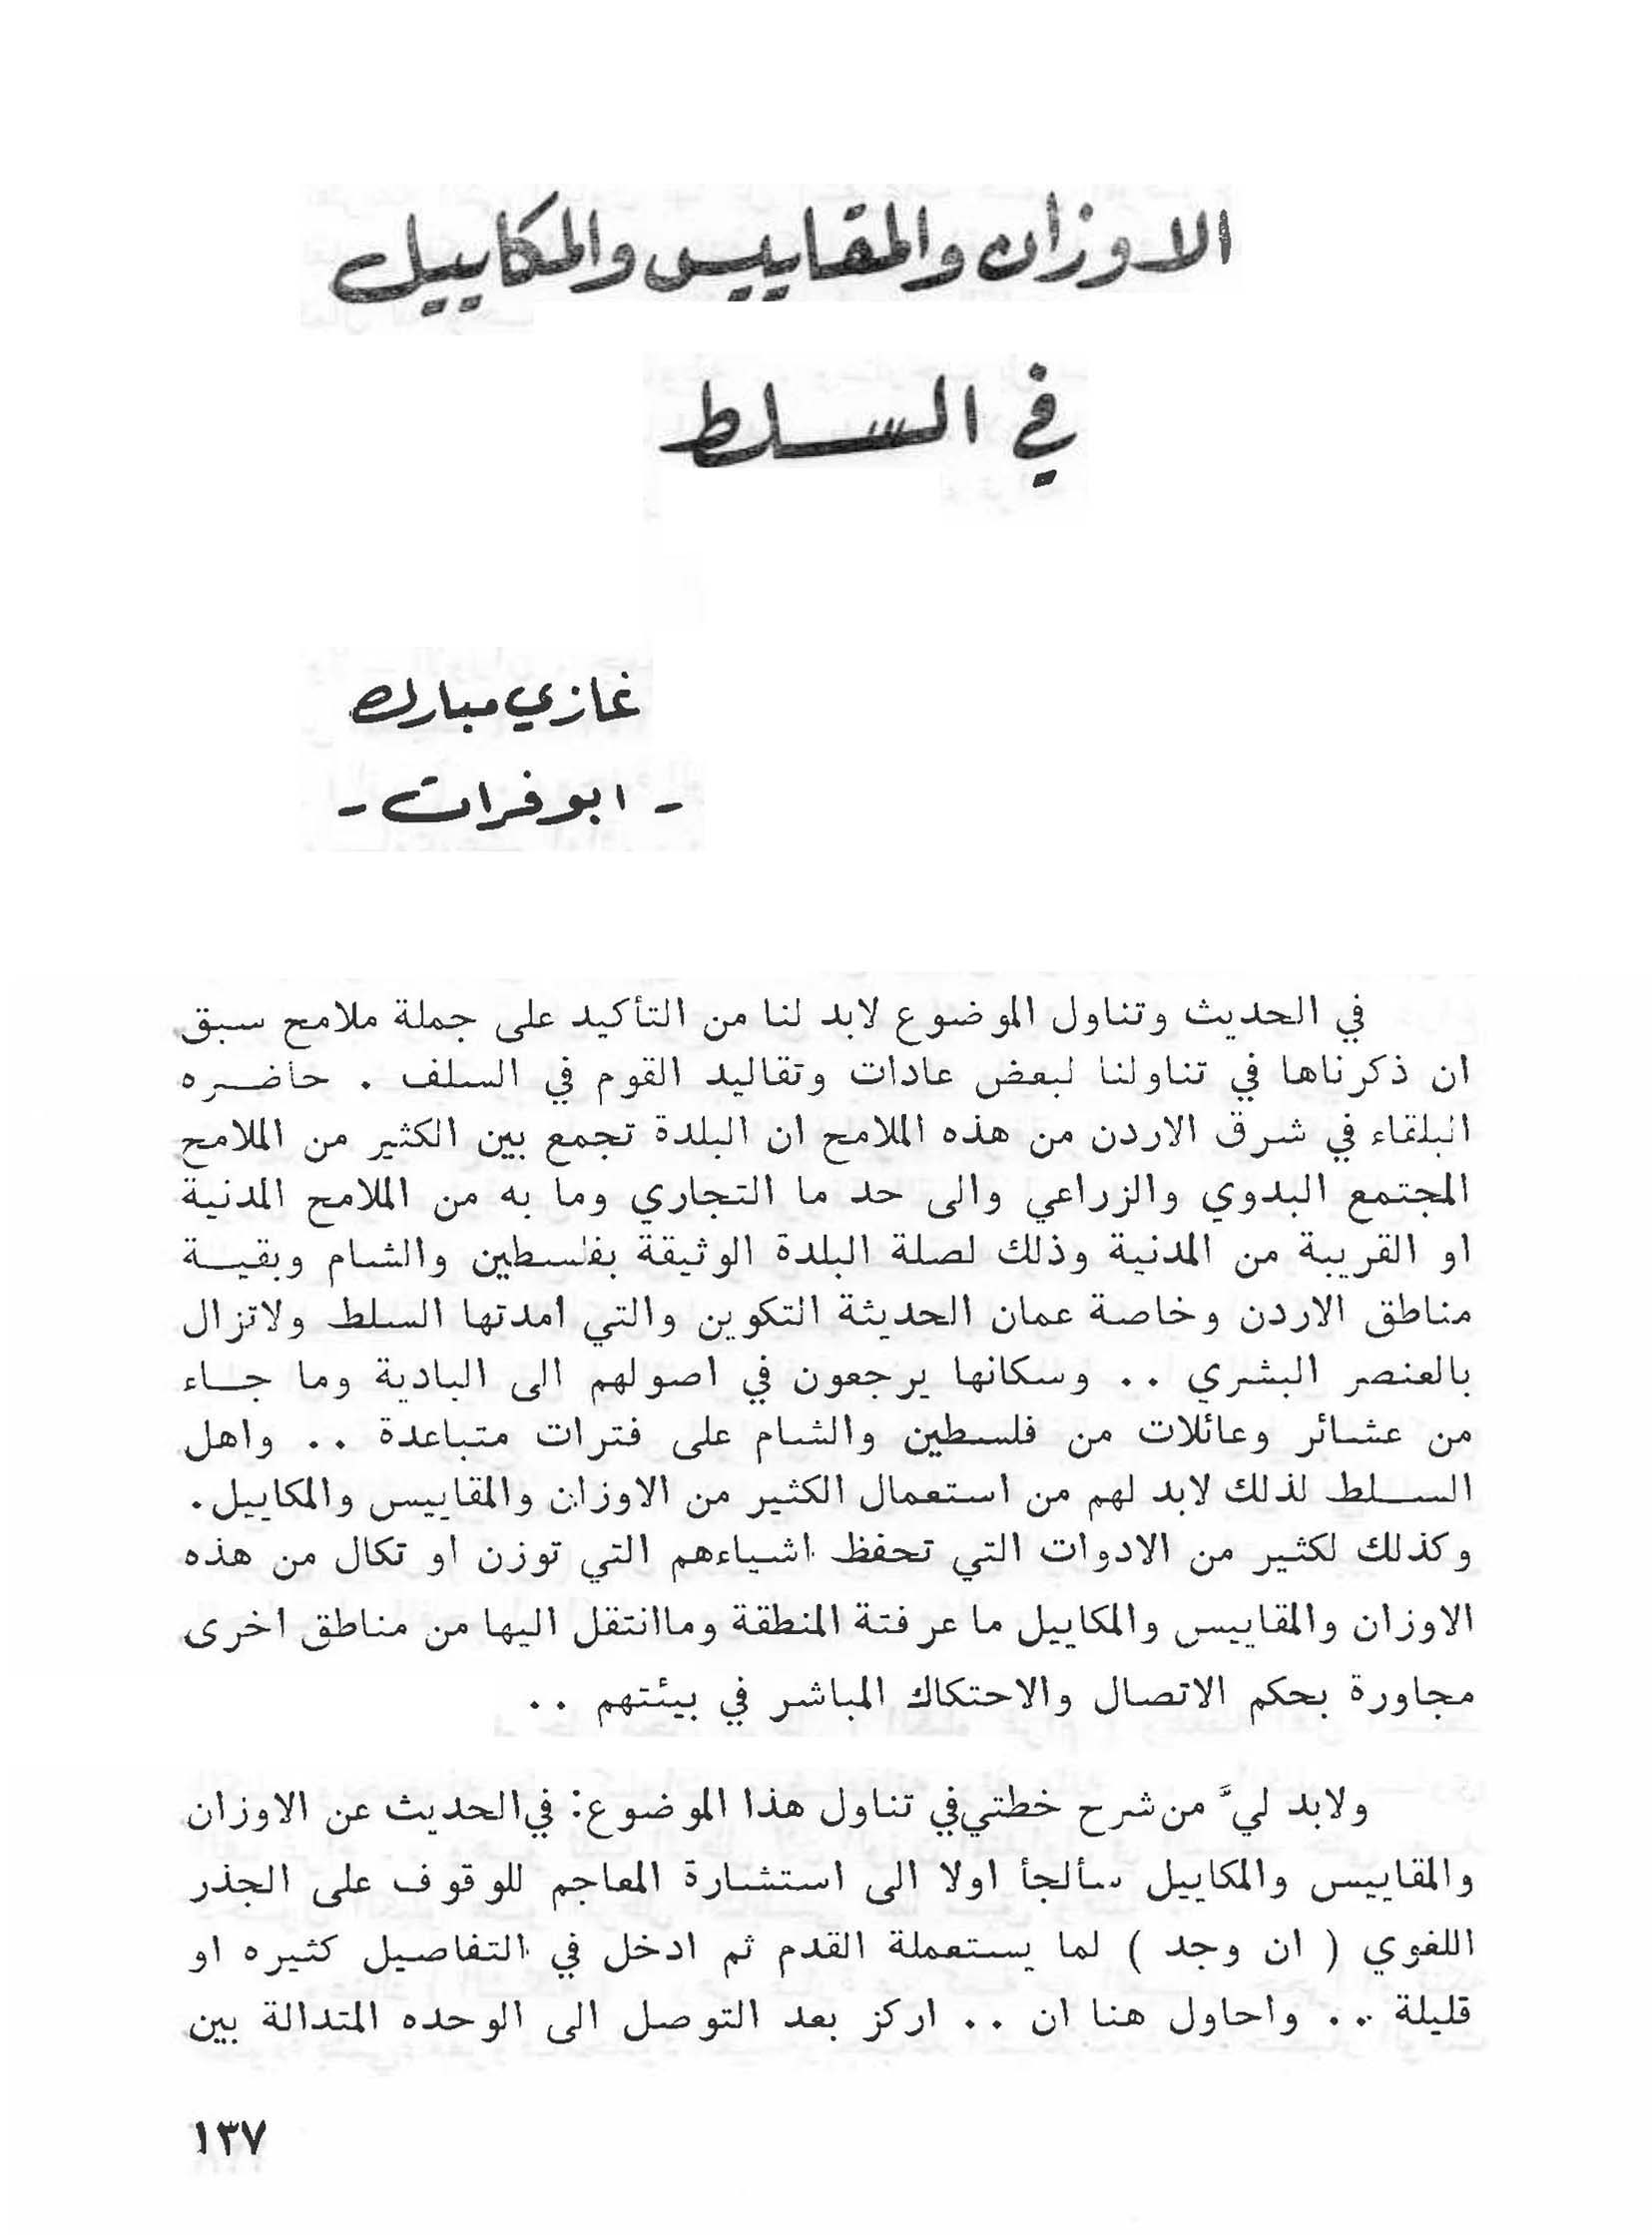 الاوزان والمقاييس والمكاييل
في السلط
غازي مبارك
- ابو فرات -
في الحديث وتناول الموضوع لابد لنا من التأكيد على جملة ملامح سبق
ان ذكرناها في تناولنا لبعض عادات وتقاليد القوم في السلف . حاضره
البلقاء في شرق الاردن من هذه الملامح ان البلدة تجمع بين الكثير من الملامح
المجتمع البدوي والزراعي والى حد ما التجاري وما به من الملامح المدنية
او القريبة من المدنية وذلك لصلة البلدة الوثيقة بفلسطين والشام وبقية
مناطق الاردن وخاصة عمان الحديثة التكوين والتي امدتها السلط ولاتزال
بالعنصر البشري .. وسكانها يرجعون في اصولهم الى البادية وما جاء
من عشائر وعائلات من فلسطين والشام على فترات متباعدة .. واهل
السلط لذلك لابد لهم من استعمال الكثير من الاوزان والمقاييس والمكاييل .
وكذلك لكثير من الادوات التي تحفظ اشياءهم التي توزن او تكال من هذه
الاوزان والمقاييس والمكاييل ما عرفتة المنطقة وماانتقل اليها من مناطق اخرى
مجاورة بحكم الاتصال والاحتكاك المباشر في بيئتهم ..
ولابد ليَّ من شرح خطتي في تناول هذا الموضوع: في الحديث عن الاوزان
والمقاييس والمكاييل سألجأ اولا الى استشارة المعاجم للوقوف على الجذر
اللغوي ( ان وجد ) لما يستعملة القدم ثم ادخل في التفاصيل كثيره او
قليلة .. واحاول هنا ان .. اركز بعد التوصل الى الوحده المتدالة بين
١٣٧